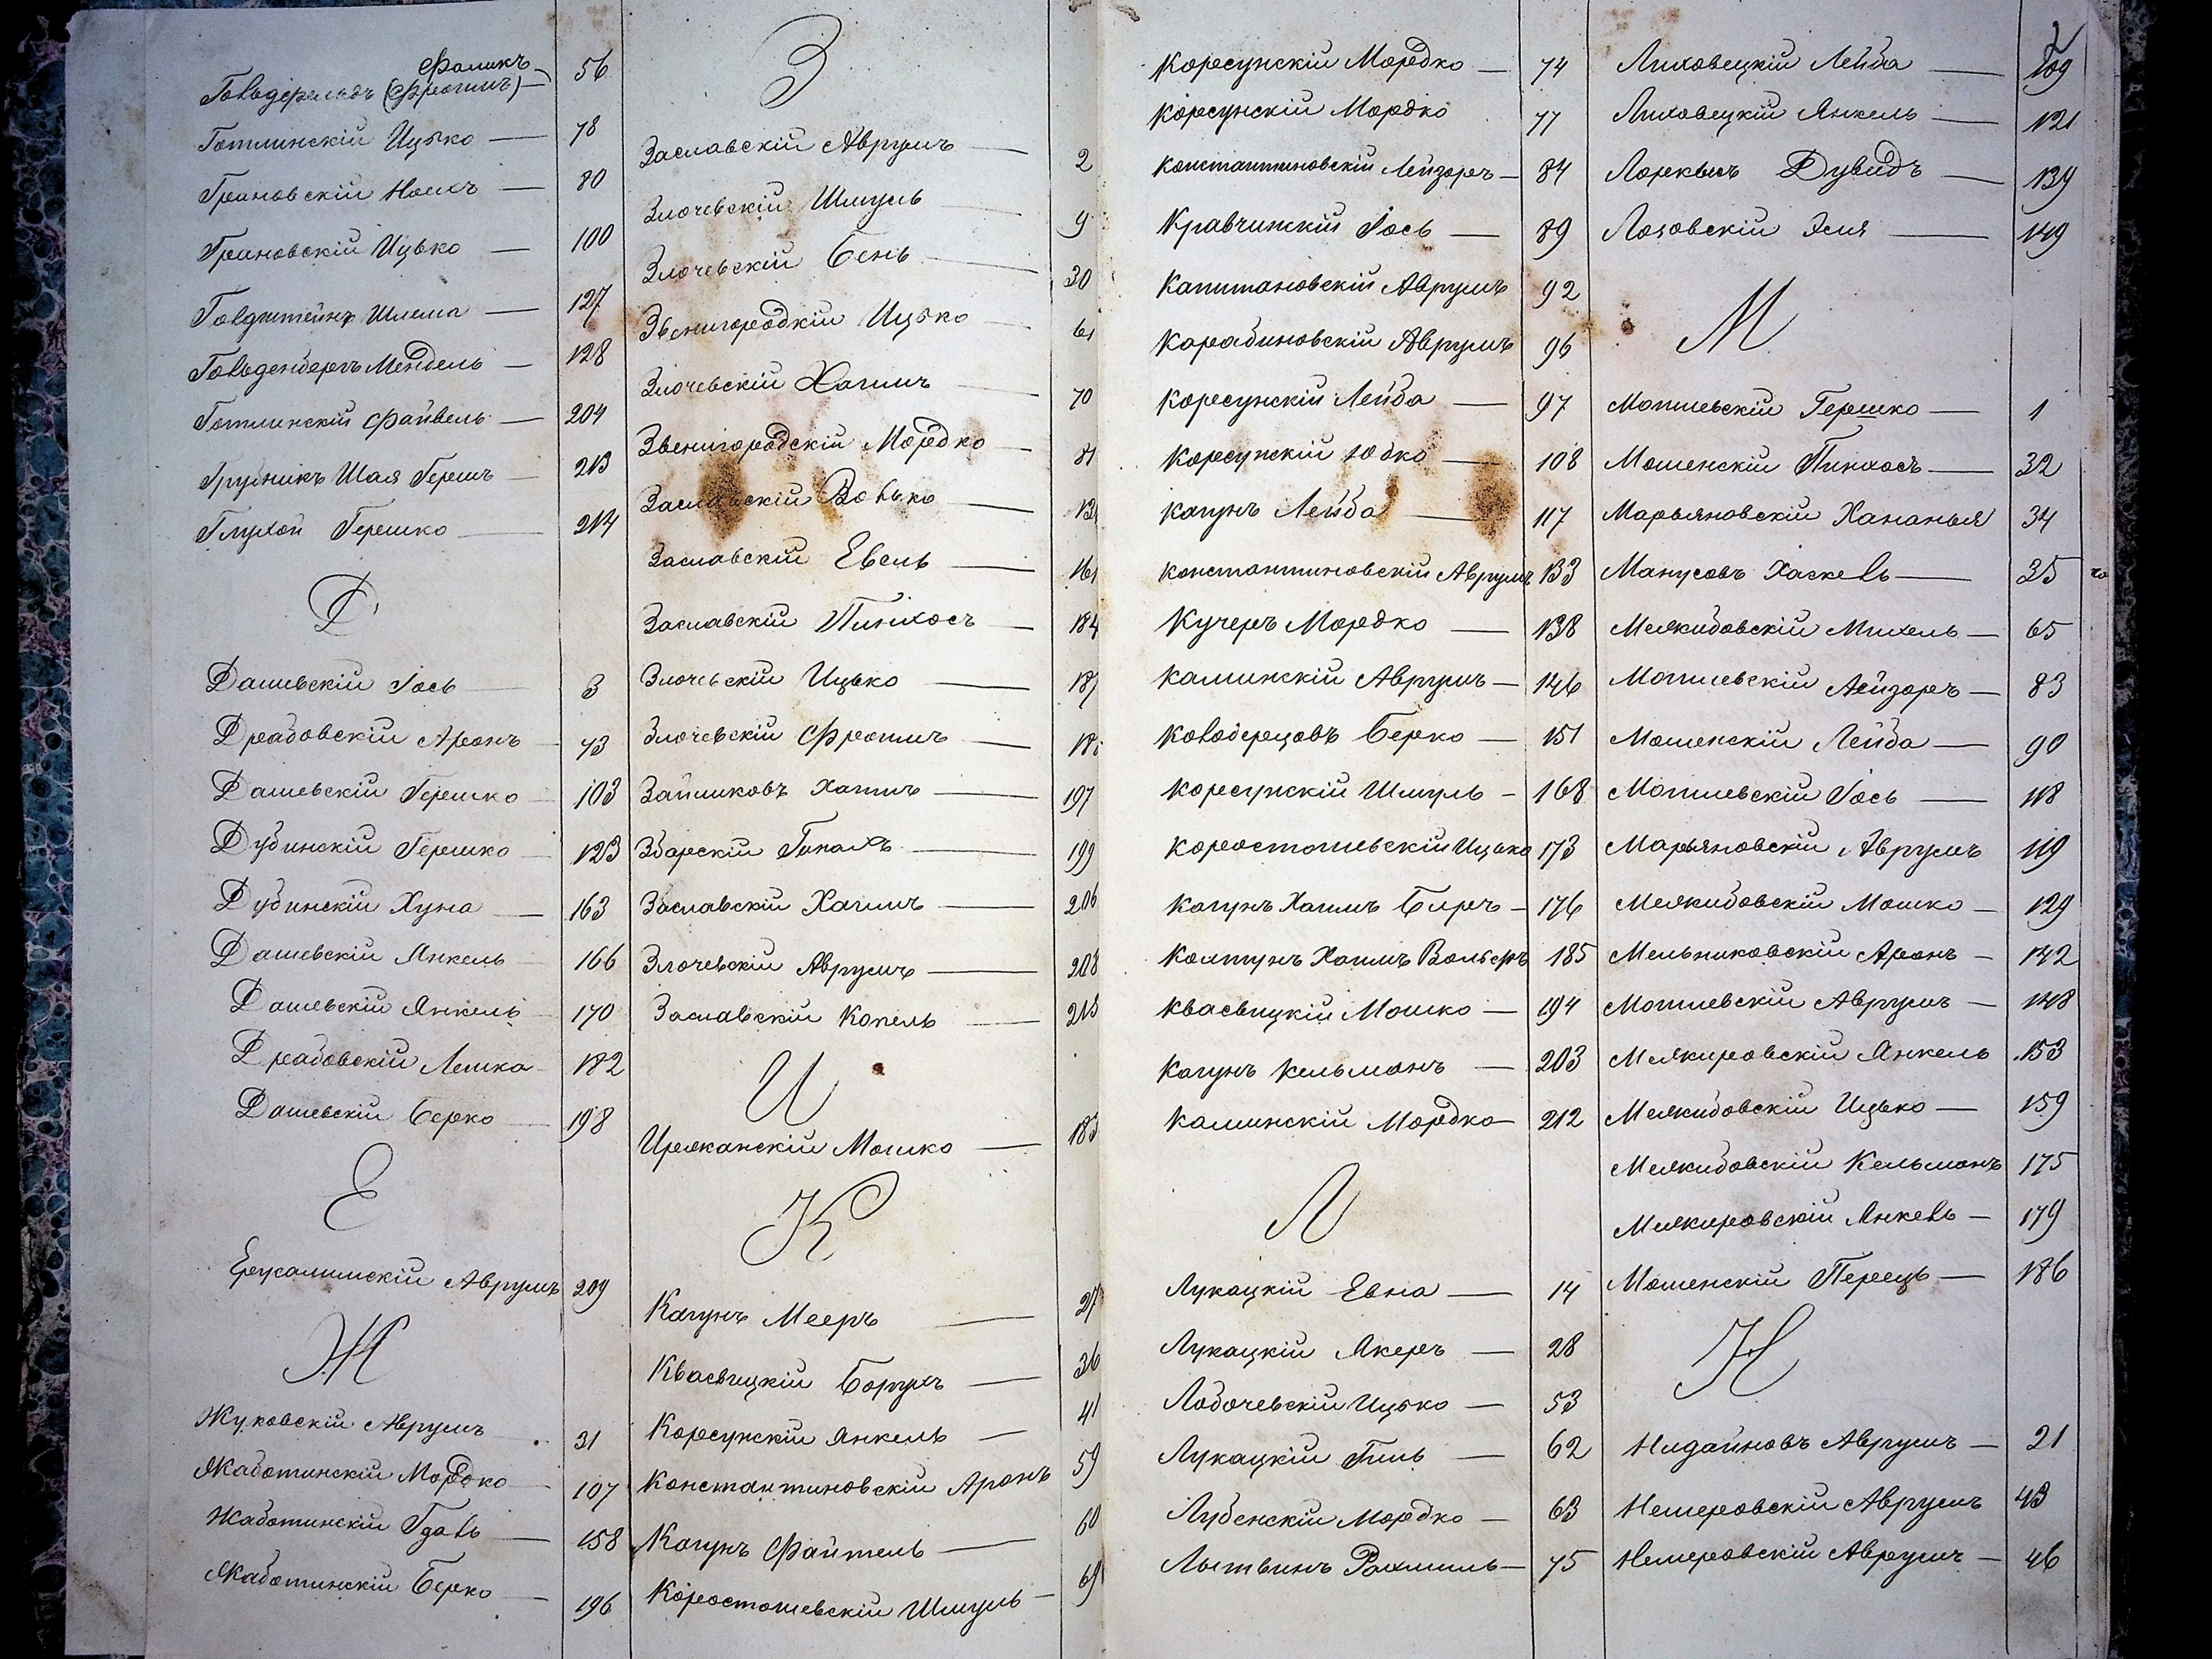 Фроимъ
Гольдфельдъ (Фроимъ) — 56
Готлинскій Ицько — 78
Грановскій Ноихъ — 80
Грановскій Ицько — 100
Гольдштейнъ Шлема — 127
Гольденбергъ Мендель — 128
Готлинскій Файвель — 204
Грубникъ Шая Гершъ — 213
Глухой Гершко — 214
Д
Дашевскій Іось — 3
Драбовскій Аронъ — 73
Дашевскій Гершко — 103
Дубинскій Гершко — 123
Дубинскій Хуна — 163
Дашевскій Янкель — 166
Дашевскій Янкель — 170
Драбовскій Лейка — 182
Дашевскій Берко — 198
Е
Ерусалимскій Аврумъ 209
Ж
Жуковскій Аврумъ 31
Жаботинскій Мордко — 107
Жаботинскій Гдаль — 158
Жаботинскій Берко — 196
З
Заславскій Аврумъ — 2
Злочевскій Шмуль — 9
Злочевскій Бень — 30
Звенигородкій Ицько — 61
Злочевскій Хаимъ — 70
Звенигородскій Мордко — 81
Заславскій Волько —
Заславскій Евель — 161
Заславскій Пинхосъ — 184
Злочевскій Ицько — 187
Злочевскій Фроимъ —
Зайчиковъ Хаимъ — 197
Збарскій — 199
Заславскій Хаимъ — 206
Злочевскій Аврумъ — 208
Заславскій Копель — 215
И
Иржканскій Мошко — 183
К
Кагунъ Мееръ — 27
Квасвицкій Борухъ — 36
Корсунскій Янкель — 41
Константиновскій Аронъ 59
Кагунъ Файтель — 60
Коростошевскій Шмуль — 69
Корсунскій Мордко — 74
Корсунскій Мордко 77
Константиновскій Лейзоръ — 84
Кравчинскій Іось — 89
Капитановскій Аврумъ 92
Карабиновскій Аврумъ 96
Корсунскій Лейба — 97
Корсунскій Юдко — 108
Кагунъ Лейба — 117
Константиновскій Аврумъ 133
Кучеръ Мордко — 138
Каминскій Аврумъ — 146
Колодерцовъ Берко — 151
Корсунскій Шмуль — 168
Коростошевскій Ицько 173
Кагунъ Хаимъ Беръ — 176
Колтунъ Хаимъ Вольфъ 185
Квасвицкій Мошко — 194
Кагунъ Кельманъ — 203
Каминскій Мордко — 212
Л
Лукацкій Евна — 14
Лукацкій Якеръ — 28
Лодочевскій Ицько — 53
Лукацкій Гиль — 62
Лубенскій Мордко — 63
Лытвинъ Рахмиль — 75
Лиховецкій Лейба — 109
Лиховецкій Янкель — 121
Дувидъ — 139
Лозовскій Эля — 149
М
Могилевскій Гершко — 1
Мошенскій Пинхосъ — 32
Марьяновскій Хананья 34
Манусовъ Хаскель — 35
Межибовскій Михель — 65
Могилевскій Лейзоръ — 83
Мошенскій Лейба — 90
Могилевскій Іось — 118
Марьяновскій Аврумъ 119
Межибовскій Мошко — 129
Мельниковскій Аронъ — 142
Могилевскій Аврумъ — 148
Межировскій Янкель 153
Межибовскій Ицько — 159
Межибовскій Кельманъ 175
Межировскій Янкель — 179
Мошенскій Перецъ — 186
Н
Нидайновъ Аврумъ — 21
Немеровскій Аврумъ 43
Немеровскій Аврумъ — 46